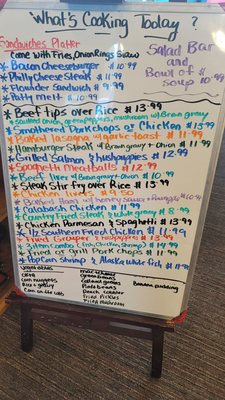 What's Cooking Today?
Sandwiches Platter
Come with Fries, Onion Rings, Slaw
* Bacon Cheeseburger $10.99
* Philly Cheese Steak $11.99
* Flounder Sandwich $9.99
* Patty melt $10.99
Salad Bar
and
Bowl of
Soup 10.99
* Beef tips over Rice $13.99
green peppers, mushroom w/ Brown gravy
* Smothered Pork chops or Chicken $13.99
* Baked lasagna w/ garlic toast $11.99
* Hamburger Steak w/ Brown gravy + Onion $11.99
* Grilled Salmon & hushpuppies $12.99
* Spaghetti Meatballs $12.99
* Beef liver w/ Brown gravy + onion $10.99
* Steak Stir fry over Rice $13.99
* Chicken livers $9.50
* Baked Ham w/ honey sauce + $10.99
* Calabash Chicken $10.99
* Country Fried Steak & white gravy $
* Chicken Parmesan & Spaghetti $13.99
* 1/2 Southern Fried Chicken $11.99
* Fried Grouper & hushpuppies $13.99
* 3 item Combo (Fish, Chicken, Shrimp) $14.99
* Fried or grill Pork Chops $11.99
* PopCorn Shrimp & Alaska white fish $11.99
Vegetables
Okra
Corn nuggets
Rice + gravy
Corn on the cob
mac + cheese
green beans
Collard greens
Pinto beans
Peach cobbler
Fried Pickles
Fried mushroom
Banana Pudding